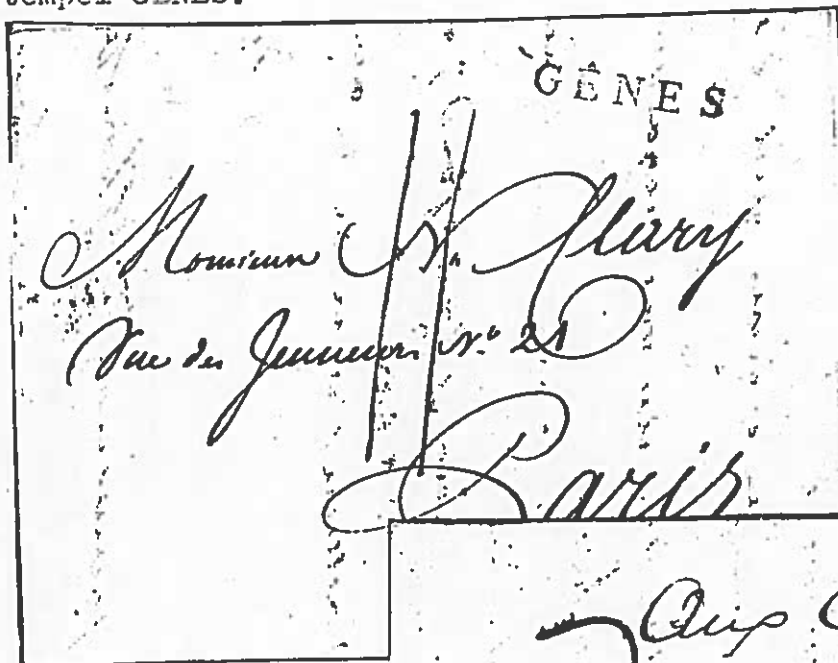 GÊNES.
GÊNES
Monsieur N. Clary
Rue des Jeuneurs N.º 21
Paris
Aux